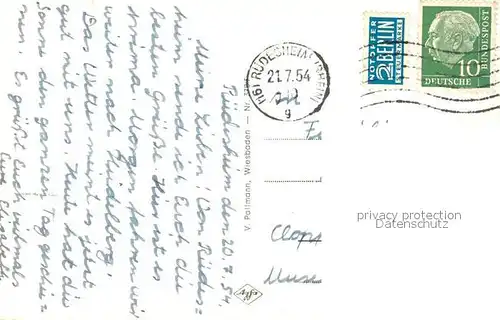 Rüdesheim den 20.7.54.
Meine Lieben! Von Rüdes-
heim sende ich Euch die
besten Grüße. Hier ist es
Morgen fahren wir
weiter nach Heidelberg.
Das Wetter meint es jetzt
gut mit uns. Heute hat die
Sonne den ganzen Tag geschie-
nen. Es grüßt Euch vielmals
Eure Elisabeth
V. Pollmann, Wiesbaden - Nr.
(16) RÜDESHEIM (RHEIN)
21.7.54
g
NOTOPFER
2 BERLIN
STEUERMARKE
DEUTSCHE
BUNDESPOST
10
privacy protection
watermark